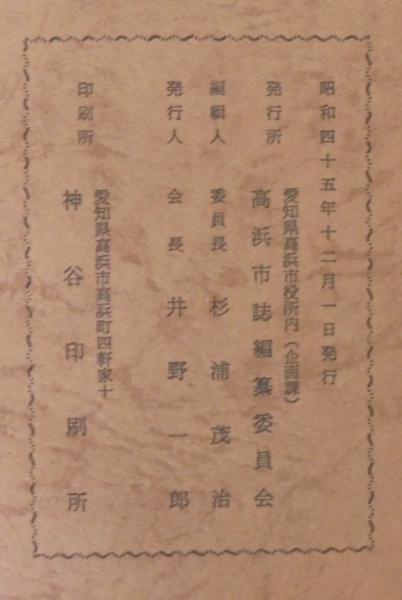 昭和四十五年十二月一日発行
愛知県高浜市役所内(企画課)
発行所 高浜市誌編纂委員会
編輯人 委員長 杉浦茂治
発行人 会長 井野一郎
愛知県高浜市高浜町四軒家十
印刷所 神谷印刷所